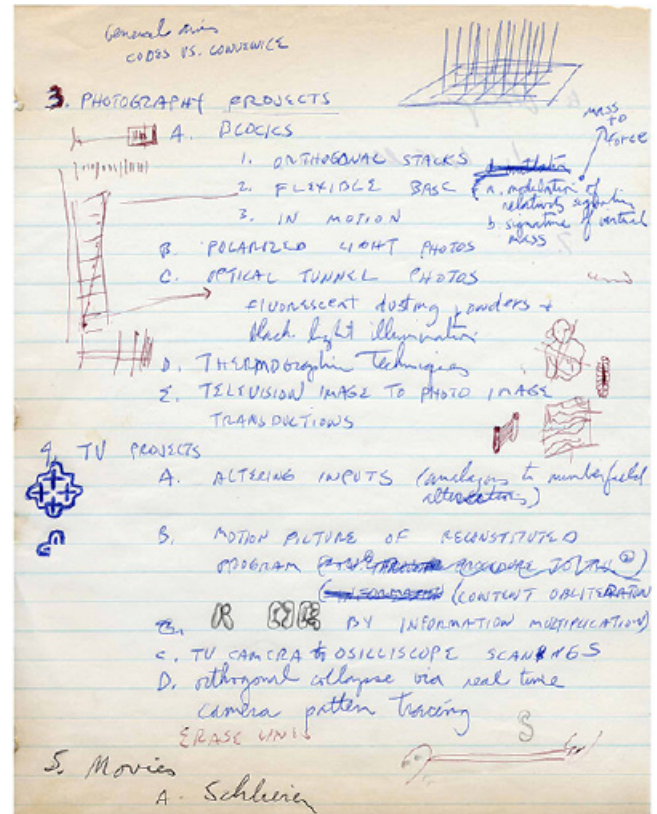 General aims
CODES VS. CONVENIENCE
3. PHOTOGRAPHY PROJECTS
MASS
TO
FORCE
A. BLOCKS
1. ORTHOGONAL STACKS
2. FLEXIBLE BASE (a. modulation of
relatively
3. IN MOTION
b. signature of vertical
mass
B. POLARIZED LIGHT PHOTOS
C. OPTICAL TUNNEL PHOTOS
fluorescent dusting powders +
black light illumination
D. THERMOGRAPHIC Techniques
E. TELEVISION IMAGE TO PHOTO IMAGE
TRANSDUCTIONS
4. TV PROJECTS
A. ALTERING INPUTS (analogous to numberfield
alterations)
B. MOTION PICTURE OF RECONSTITUTED
PROGRAM
(CONTENT OBLITERATION
BY INFORMATION MULTIPLICATION)
C. TV CAMERA to OSILLISCOPE SCANINGS
D. orthogonal collapse via real time
camera pattern tracing
ERASE LINES
5. Movies
A. Schlieren